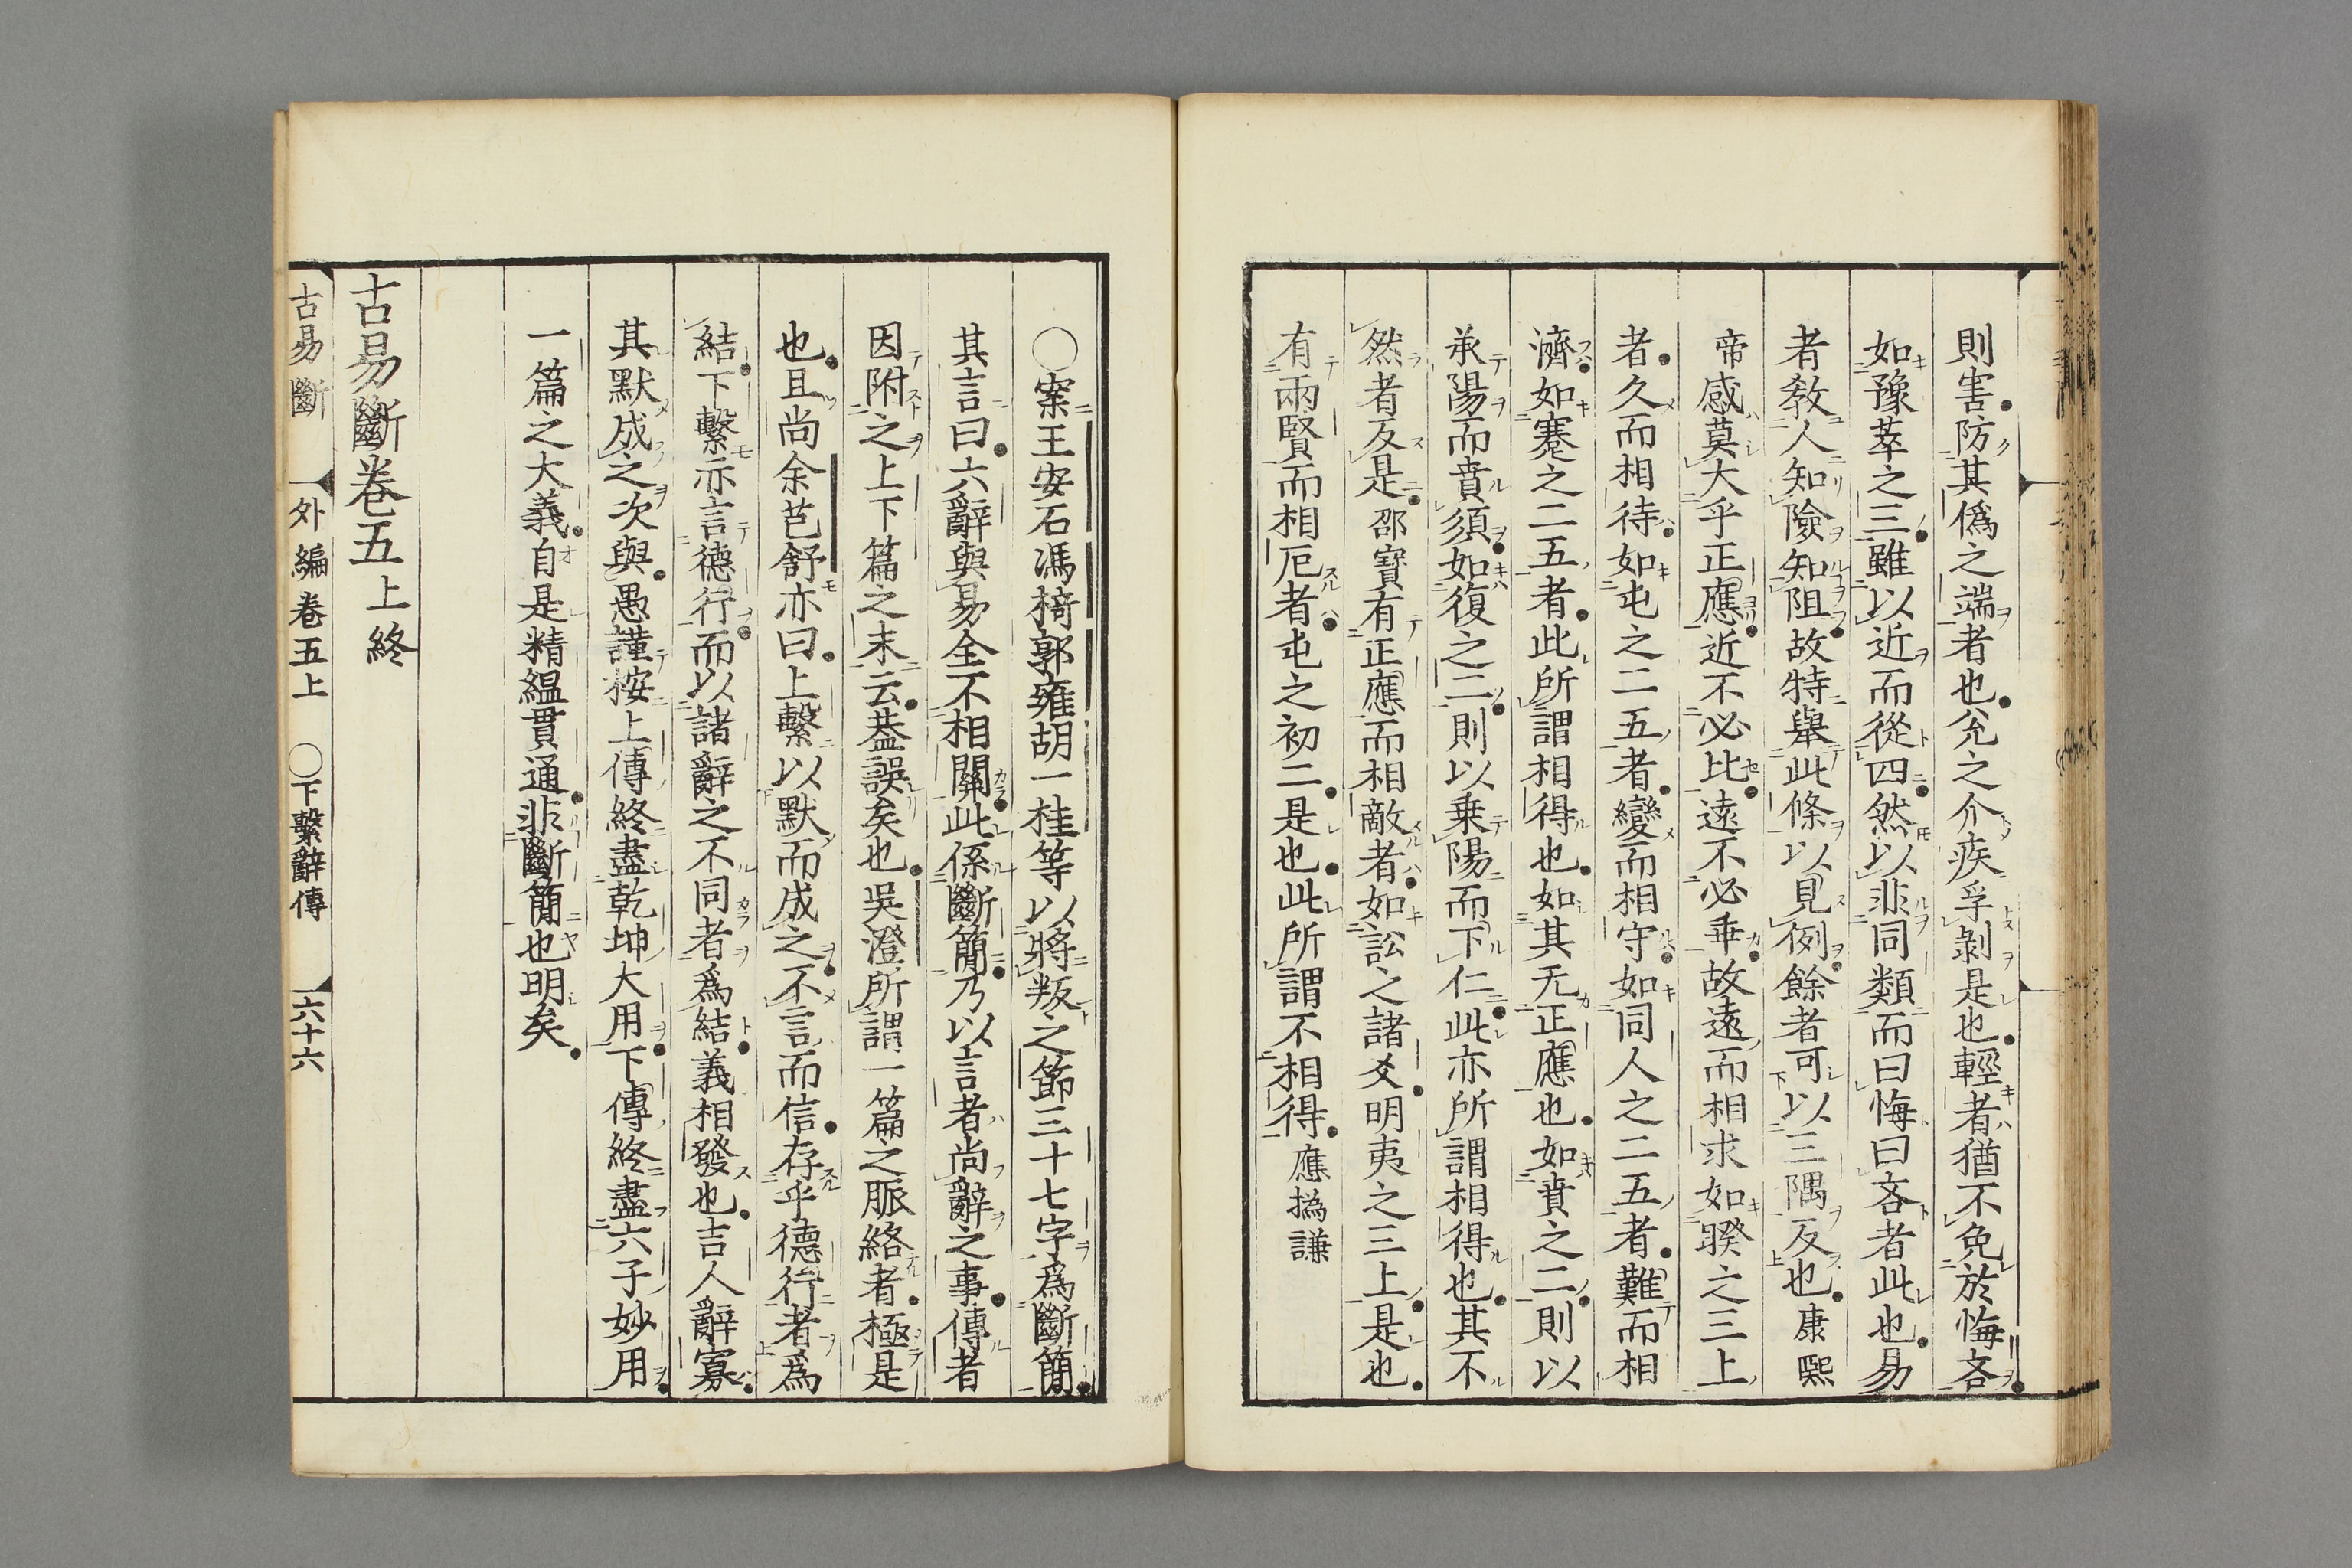 則害防其僞之端者也兊之介疾孚剝是也輕者猶不免於悔吝
如豫萃之三雖以近而從四然以非同類而曰悔曰吝者此也易
者敎人知險知阻故特舉此條以見例餘者可以三隅反也康熙
帝感莫大乎正應近不必比遠不必乖故遠而相求如睽之三上
者久而相待如屯之二五者變而相守如同人之二五者難而相
濟如蹇之二五者此所謂相得也如其无正應也如賁之二則以
承陽而賁須如復之二則以乗陽而下仁此亦所謂相得也其不
然者反是邵寶有正應而相敵者如訟之諸爻明夷之三上是也
有兩賢而相厄者屯之初二是也此所謂不相得應撝謙
〇案王安石馮椅郭雍胡一桂等以將叛之節三十七字爲斷簡
其言曰六辭與易全不相關此係斷簡乃以言者尚辭之事傳者
因附之上下篇之末云葢誤矣也吳澄所謂一篇之脈絡者極是
也且尚余芑舒亦曰上繫以默而成之不言而信存乎德行者爲
結下繫示言德行而以諸辭之不同者爲結義相發也吉人辭寡
其默成之次與愚謹按上傳終盡乾坤大用下傳終盡六子妙用
一篇之大義自是精縕貫通非斷簡也明矣
古易斷卷五上終
古易斷 外編卷五上 〇下繫辭傳 六十六